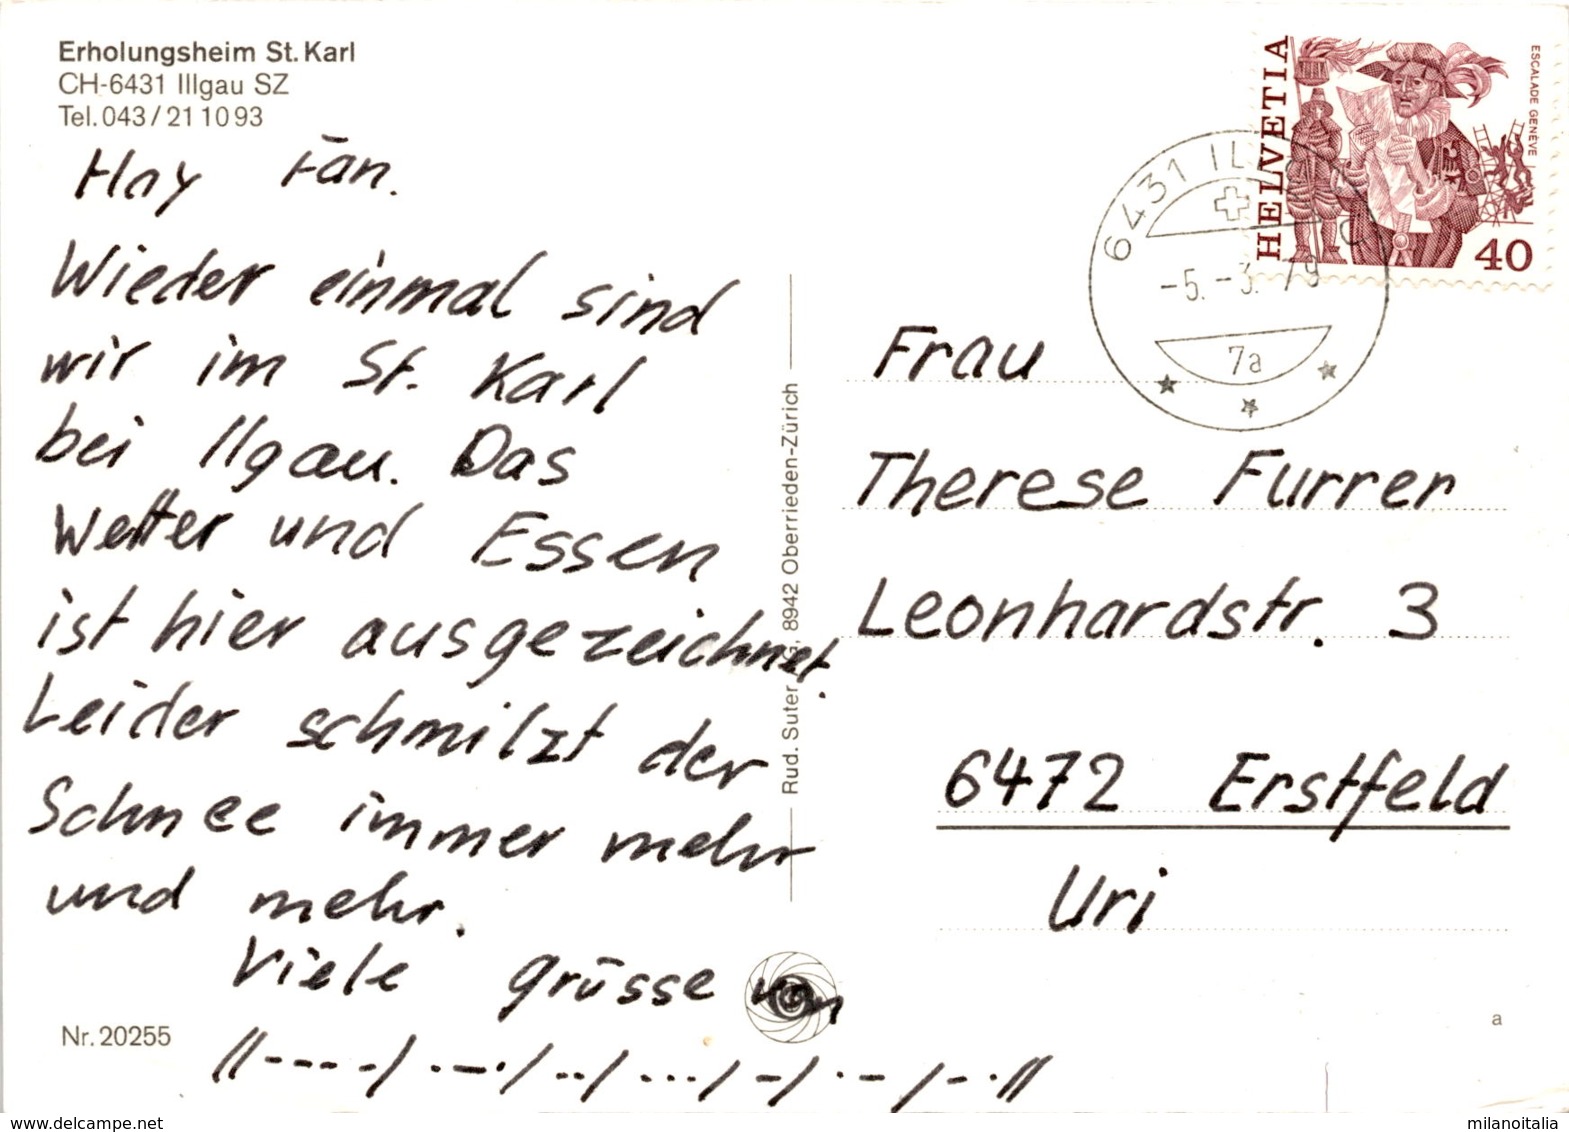 Erholungsheim St. Karl
CH-6431 Illgau SZ
Tel. 043/21 10 93
Hoy Fän.
Wieder einmal sind
wir im St. Karl
bei Ilgau. Das
Wetter und Essen
ist hier ausgezeichnet.
Leider schmilzt der
Schnee immer mehr
und mehr.
Viele grüsse von
//----/.-./../.../-/.-/-.//
Nr. 20255
Rud. Suter AG, 8942 Oberrieden-Zürich
HELVETIA
ESCALADE GENÈVE
40
6431 IL
-5.-3.79
7a
Frau
Therese Furrer
Leonhardstr. 3
6472 Erstfeld
Uri
a
milanoitalia
www.delcampe.net